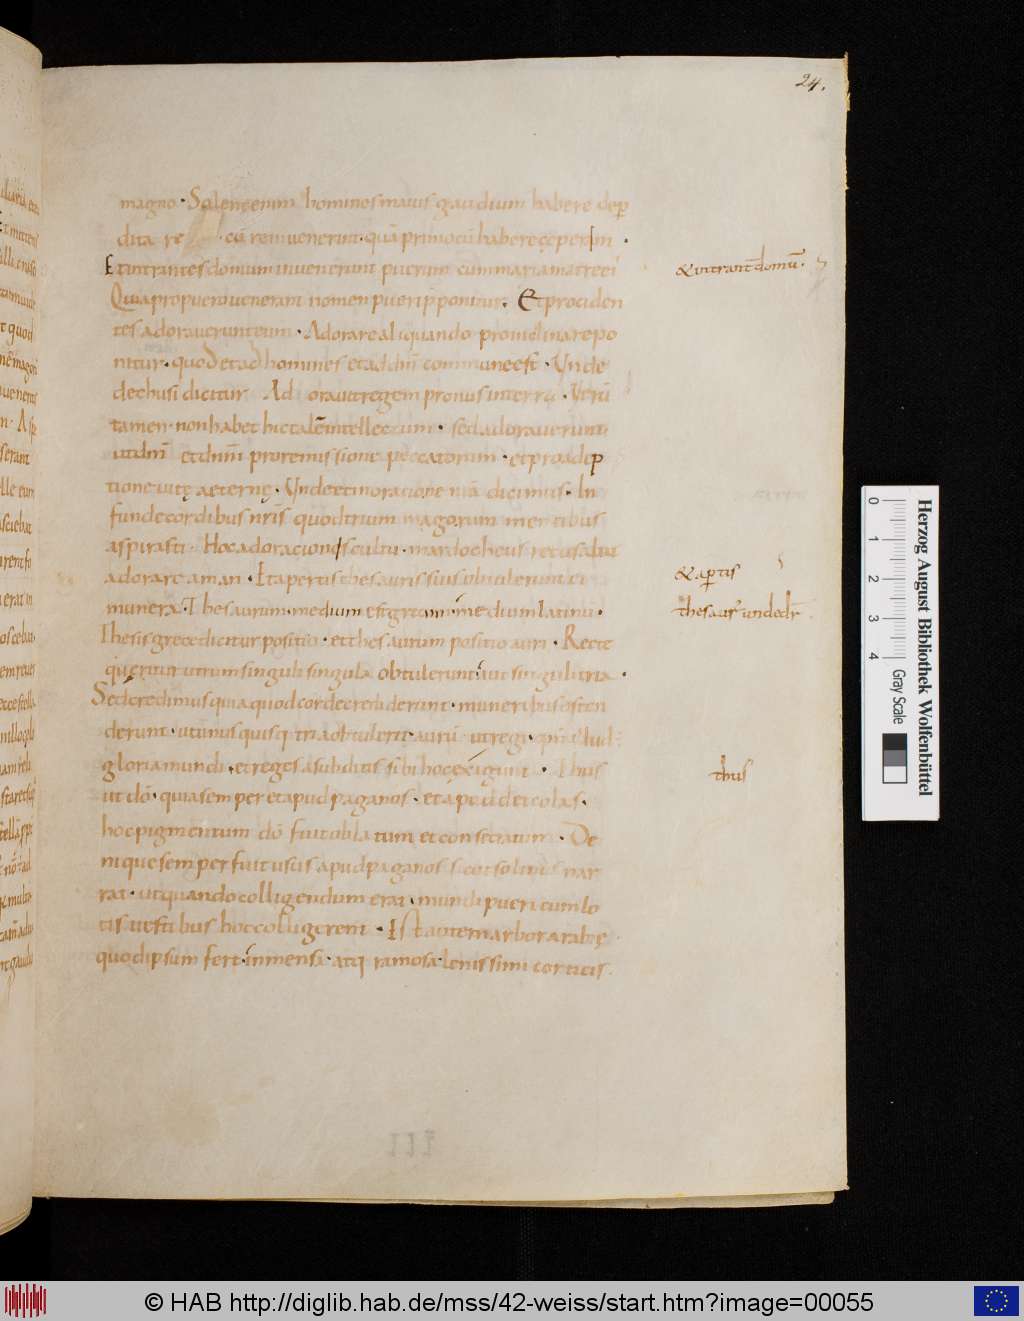 24.
magno · Solent enim homines maius gaudium habere de p̱
dita re cū reinuenerint · quā primo cū habere cęperint ·
Et intrantes domum inuenerunt puerum cum maria matre eiꝰ
Quia propuero uenerant nomen pueri p̄ponitur. Et prociden
tes adorauerunt eum · Adorare aliquando pro inclinare po
nitur · quod et ad homines et ad dn̄m commune est · Unde
de chusi dicitur Ad orauit regem pronus in terra · Uerū
tamen · non habet hic talē intellectum · sed adorauerunt
ut dn̄m et dn̄m pro remissione peccatorum · et pro adep
tione uitę aeternę · Unde et in oratione n̄ra dicimus · In
funde cordibus n̄ris quod trium magorum mentibus
aspirasti · Hoc adorationis cultu · mardocheus recusabat
adorare aman · Et apertis thesauris suis obtulerunt ei
munera · Thesaurum · medium est grecum · medium latinū ·
Thesis grece dicitur positio · et thesaurum positio auri · Recte
quęritur utrum singuli singula obtulerunt · aut singuli tria ·
Sed credimus quia quod corde crediderunt · muneribus osten
derunt · ut unus quisq; tria obtulerit · aurū · ut regi · qm̄ illud
gloria mundi · et reges a subditis sibi hoc exigunt · Thus
ut dō · quia semper et apud paganos · et apud deicolas ·
hoc pigmentum dō fuit oblatum et consecratum · De
nique semper fuit usus apud paganos sicut solinus nar
rat · ut quando colligendum erat · mundi pueri cum lo
tis uestibus hoc colligerent · Est autem arbor arabię
quod ipsum fert · inmensa · atq; ramosa lenissimi corticis.
& intrant̄ domū.
& aꝑtis
thesaurꝰ unde dr̄
thus
Herzog August Bibliothek Wolfenbüttel
0 1 2 3 4
Gray Scale
© HAB http://diglib.hab.de/mss/42-weiss/start.htm?image=00055